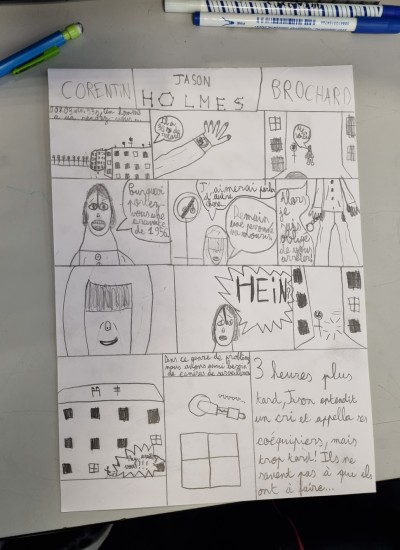 CORENTIN
JASON
HOLMES
BROCHARD
un homme
Pourquoi
portez-
vous une
cravate
de 1950
J'aimerais parler
d'autre
chose
Demain,
une personne
va mourir
Alors,
je
suis
obligé
de vous
arrêter!
HEIN
Dans ce genre de problème
nous avons aussi besoin
de caméras de surveillance
3 heures plus
tard, Jason entendit
un cri et appella ses
coéquipiers, mais
trop tard! Ils ne
savent pas à que els
ont à faire...